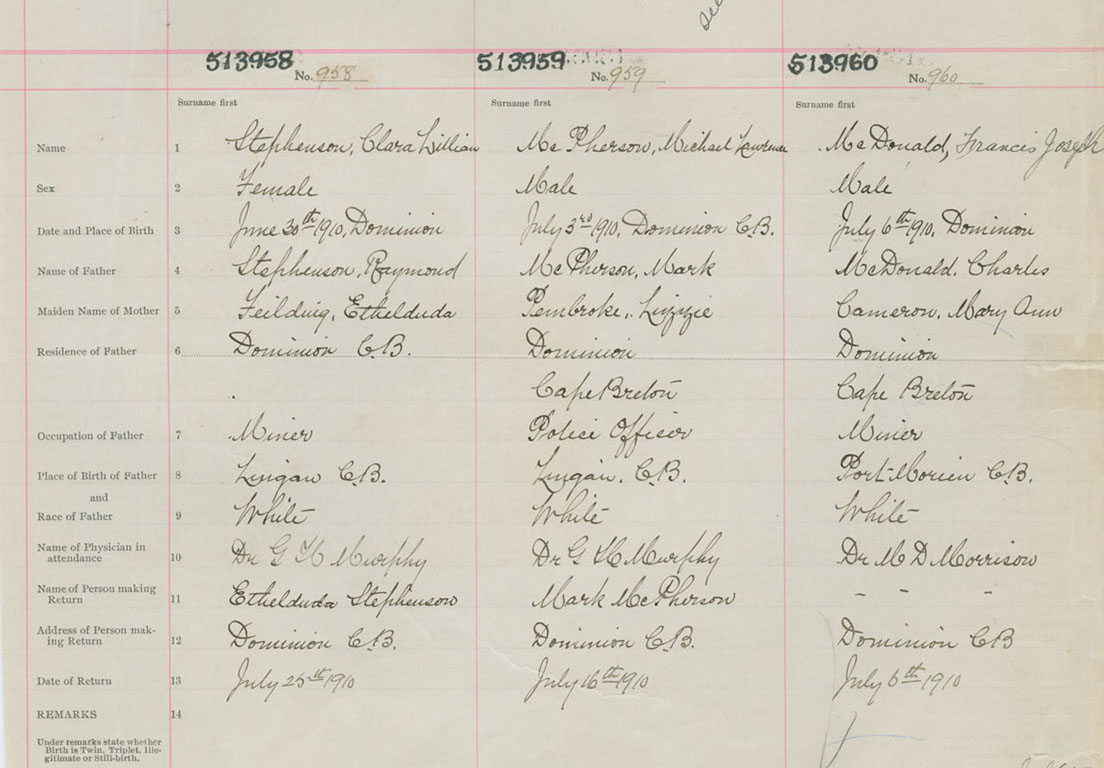 See
513958 513959 513960
No. 958 No. 959 No. 960
Surname first Surname first Surname first
Name 1 Stephenson, Clara Lillian Mc Pherson, Michael Lawrence McDonald, Francis Joseph
Sex 2 Female Male Male
Date and Place of Birth 3 June 30th 1910, Dominion July 3rd 1910, Dominion C.B. July 6th 1910, Dominion
Name of Father 4 Stephenson, Raymond McPherson, Mark McDonald, Charles
Maiden Name of Mother 5 Feilding, Ethelduda Pembroke, Lizzie Cameron, Mary Ann
Residence of Father 6 Dominion C.B. Dominion Dominion
Cape Breton Cape Breton
Occupation of Father 7 Miner Police Officer Miner
Place of Birth of Father 8 Lingan C.B. Lingan, C.B. Port-Morien C.B.
and
Race of Father 9 White White White
Name of Physician in
attendance 10 Dr G H Murphy Dr G H Murphy Dr M D Morrison
Name of Person making
Return 11 Ethelduda Stephenson Mark McPherson - - -
Address of Person mak-
ing Return 12 Dominion C.B. Dominion C.B. Dominion C.B
Date of Return 13 July 25th 1910 July 16th 1910 July 6th 1910
REMARKS 14
Under remarks state whether
Birth is Twin, Triplet, Ille-
gitimate or Still-birth.